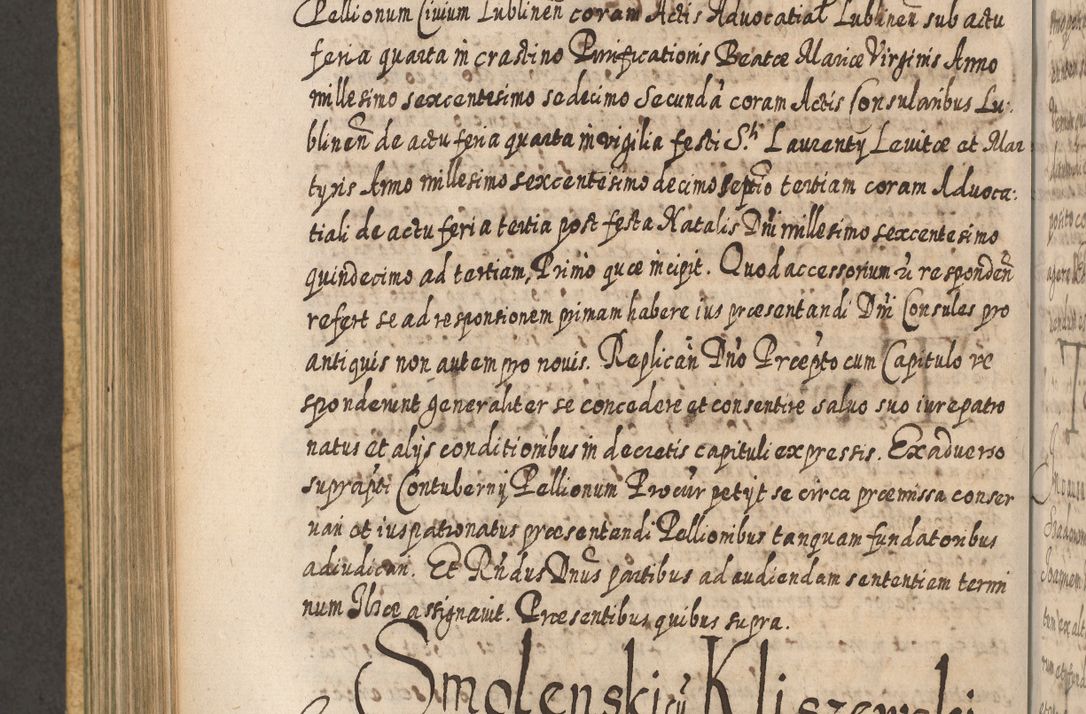 Pellionum Civium Lublinen̄ coram Actis Advocatial Lublinen̄ sub actu
feria quarta in crastino Purificationis Beatæ Mariæ Virginis Anno
millesimo sexcentesimo sedecimo Secunda coram Actis Consularibus Lu:
blinen̄ de actu feria quarta in vigilia festi S. Laurentÿ Levitæ et Mar
tyris Anno millesimo sexcentesimo decimo septio tertiam coram Advoca:
tiali de actu feria tertia post festa Natalis Dni millesimo sexcentesimo
quindecimo ad tertiam, Primo quæ incipit. Quod accessorium responden̄
refert se ad responsionem primam habere ius præsentandi Dni Consules pro
antiquis non autem pro novis. Replican̄ Dno Præpto cum Capitulo re
sponderunt generaliter se concedere et consentire salvo suo iurepatro
natus et alijs conditionibus in decretis capituli expressis. Ex adverso
suprapti Contubernÿ Pellionum Procur petÿt se circa præmissa conser
vari et ius patronatus præsentandi Pellionibus tanquam fundatoribus
adiudicari. Et Rndus Dnus partibus ad audiendam sententiam termi
num assignavit. Præsentibus quibus supra.
Smolenskicÿ Kliszewski